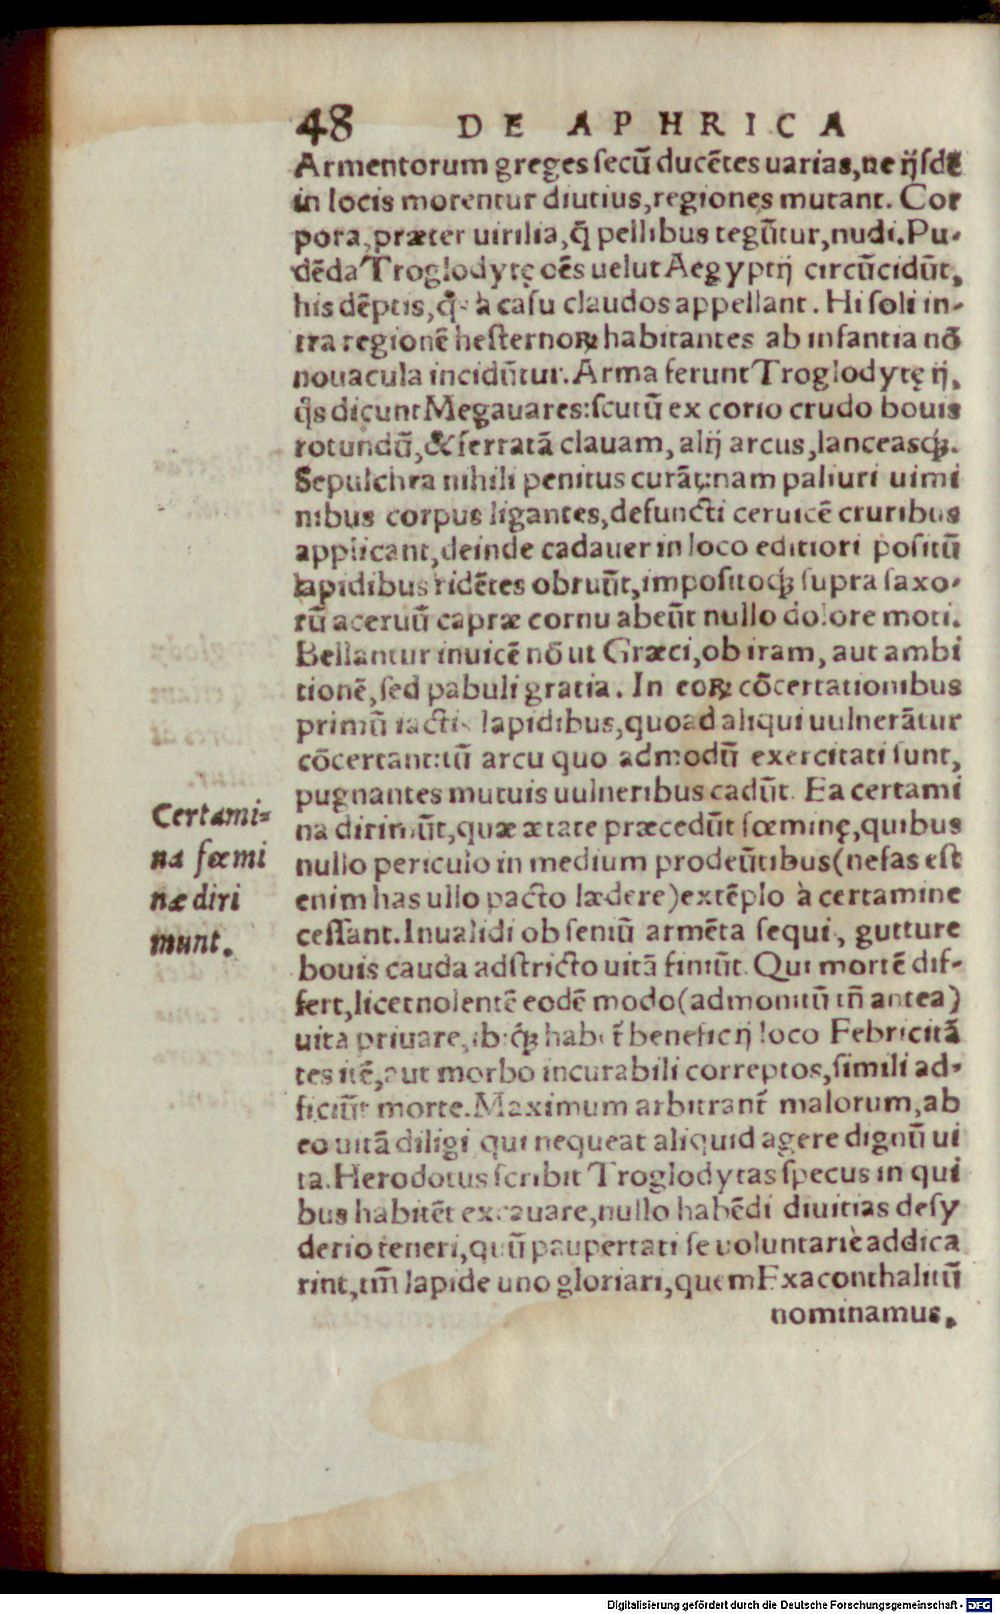 48 DE APHRICA
Armentorum greges secū ducētes uarias, ne ijsdē
in locis morentur diutius, regiones mutant. Cor
pora, præter uirilia, q̄ pellibus tegūtur, nudi. Pu-
dēda Troglodytę oēs uelut Aegyptij circūcidūt,
his dēptis, à casu claudos appellant. Hi soli in-
tra regionē hesternoꝝ habitantes ab infantia nō
nouacula incidūtur. Arma ferunt Troglodytę ij,
q̄s dicunt Megauares: scutū ex corio crudo bouis
rotundū, & ferratā clauam, alij arcus, lanceasq́ꝫ.
Sepulchra nihili penitus curāt: nam paliuri uimi
nibus corpus ligantes, defuncti ceruicē cruribus
applicant, deinde cadauer in loco editiori positū
lapidibus ridētes obruūt, impositoq́ꝫ supra saxo-
rū aceruū capræ cornu abeūt nullo dolore moti.
Bellantur inuicē nō ut Græci, ob iram, aut ambi
tionē, sed pabuli gratia. In eoꝝ cōcertationibus
primū iactis lapidibus, quoad aliqui uulnerātur
cōcertant: tū arcu quo admodū exercitati sunt,
pugnantes mutuis uulneribus cadūt. Ea certami
na dirimūt, quæ ætate præcedūt fœminę, quibus
nullo periculo in medium prodeūtibus (nefas est
enim has ullo pacto lædere) extēplo à certamine
cessant. Inualidi ob seniū armēta sequi, gutture
bouis cauda adstricto uitā finiūt. Qui mortē dif-
fert, licet nolentē eodē modo (admonitū tn̄ antea)
uita priuare, ibiq́ꝫ habet̄ beneficij loco Febricitā
tes itē, aut morbo incurabili correptos, simili ad-
ficiūt morte. Maximum arbitrant̄ malorum, ab
eo uitā diligi qui nequeat aliquid agere dignū ui
ta. Herodotus scribit Troglodytas specus in qui
bus habitēt excauare, nullo habēdi diuitias desy
derio teneri, quū paupertati se voluntariè addica
rint, tm̄ lapide uno gloriari, quem Exaconthalitū
nominamus.
Certami-
na fœmi
næ diri
munt.
Digitalisierung gefördert durch die Deutsche Forschungsgemeinschaft - DFG